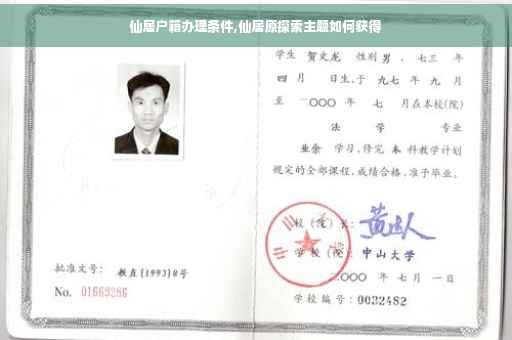 仙居户籍办理条件,仙居原探索主题如何获得
学生 贺文龙 性别 男 、七三 年
四 月 日生,于 九七 年 九 月
至 二〇〇〇 年 七 月在本校(院)
法 学 专业
业余 学习,修完 本 科教学计划
规定的全部课程,成绩合格,准予毕业。
校(院)长:
学校(院): 中山大学
二〇〇〇 年 七月 一日
学校编号: 0032482
批准文号: 教直[1993]8号
No. 01669286